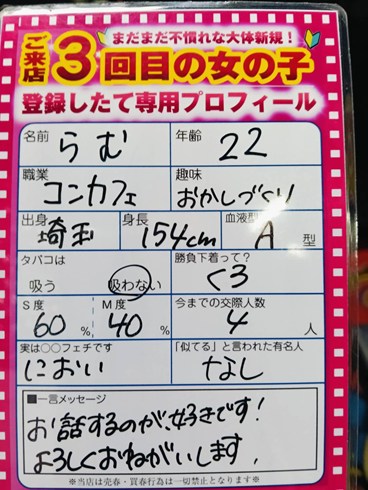 まだまだ不慣れな大体新規！
ご来店3回目の女の子
登録したて専用プロフィール
名前 らむ 年齢 22
職業 趣味
コンカフェ おかしづくり
出身 埼玉 身長 154cm 血液型 A 型
タバコは 勝負下着って？
吸う 吸わない くろ
S度 M度 今までの交際人数
60 % 40 % 4 人
実は〇〇フェチです 「似てる」と言われた有名人
におい なし
■一言メッセージ
お話するのが、好きです！
よろしくおねがいします，
※当店は売春・買春行為は一切禁止となります※